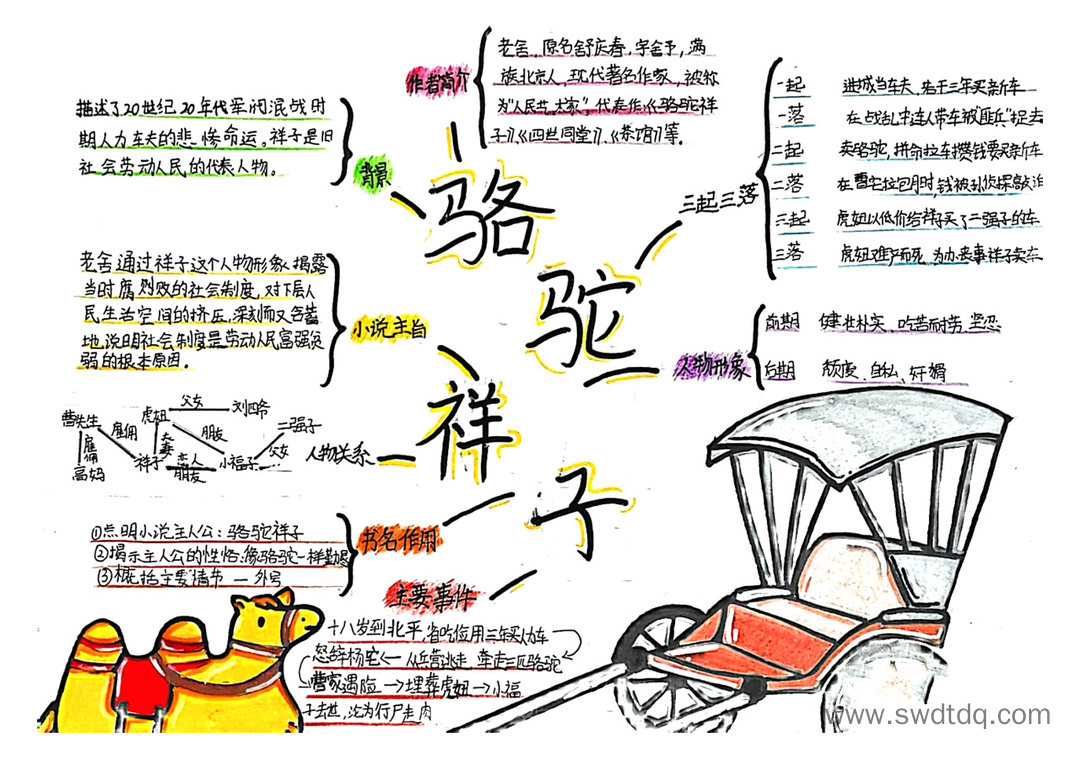 骆驼祥子
作者简介
老舍，原名舒庆春，字舍予，满
族北京人，现代著名作家，被称
为“人民艺术家”，代表作《骆驼祥
子》《四世同堂》、《茶馆》等.
背景
描述了20世纪20年代军阀混战时
期人力车夫的悲惨命运。祥子是旧
社会劳动人民的代表人物。
三起三落
一起 进城当车夫，苦干三年买新车
一落 在战乱中连人带车被“匪兵”捉去
二起 卖骆驼，拼命拉车攒钱要买新车
二落 在曹宅拉包月时，钱被孙侦探敲诈
三起 虎妞以低价给祥子买了二强子的车
三落 虎妞难产而死，为办丧事祥子卖车
小说主旨
老舍通过祥子这个人物形象揭露
当时腐烈败的社会制度，对下层人
民生活空间的挤压，深刻而又含蓄
地说明社会制度是劳动人民富强贫
弱的根本原因。
人物形象
前期 健壮朴实、吃苦耐劳、坚忍
后期 颓废、自私、奸猾
人物关系
曹先生 雇佣 虎妞 父女 刘四爷
雇佣 夫妻 朋友 二强子
高妈 祥子 恋人 朋友 小福子 父女
书名作用
①点明小说主人公：骆驼祥子
②揭示主人公的性格：像骆驼一样勤恳
③概括主要情节 — 外号
主要事件
十八岁到北平，省吃俭用三年买人力车
怒辞杨宅 ← 从兵营逃走，牵走三匹骆驼
曹家遇险 → 埋葬虎妞 → 小福
子去世，沦为行尸走肉
www.swdtdq.com